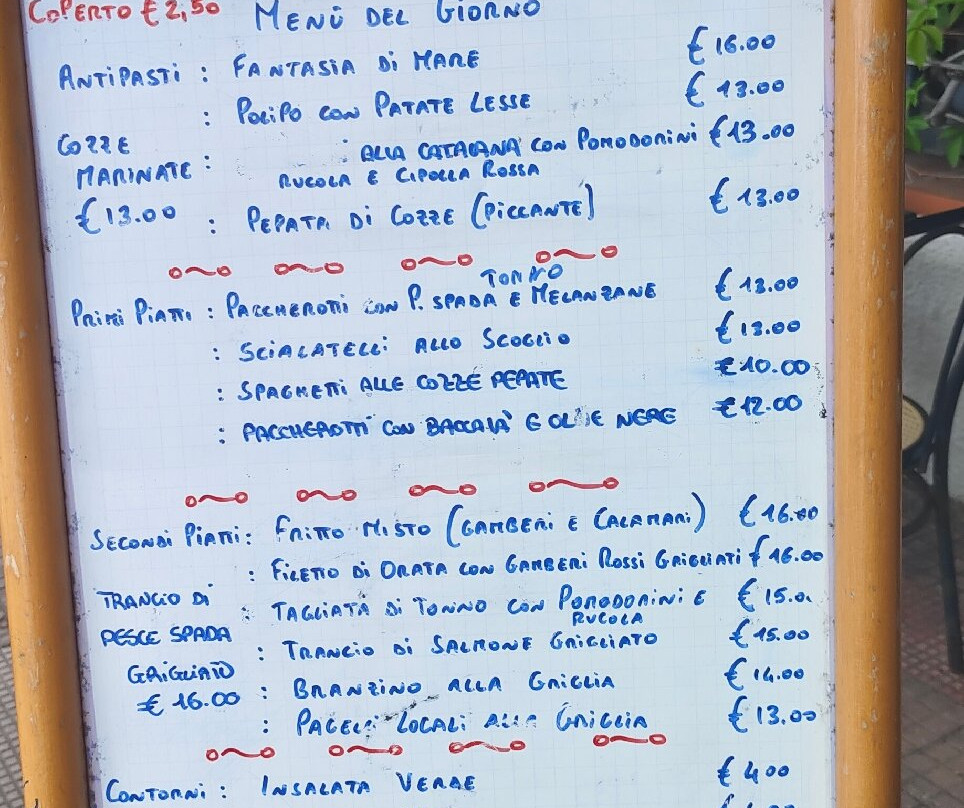 COPERTO € 2,50 MENÙ DEL GIORNO
ANTIPASTI : FANTASIA DI MARE € 16.00
: POLIPO CON PATATE LESSE € 13.00
COZZE MARINATE € 13.00
: ALLA CATALANA CON POMODORINI € 13.00
RUCOLA E CIPOLLA ROSSA
: PEPATA DI COZZE (PICCANTE) € 13.00
TONNO
PRIMI PIATTI : PACCHEROTTI CON P. SPADA E MELANZANE € 13.00
: SCIALATELLI ALLO SCOGLIO € 13.00
: SPAGHETTI ALLE COZZE PEPATE € 10.00
: PACCHEROTTI CON BACCALÀ E OLIE NERE € 12.00
SECONDI PIATTI : FRITTO MISTO (GAMBERI E CALAMARI) € 16.00
: FILETTO DI ORATA CON GAMBERI ROSSI GRIGLIATI € 16.00
TRANCIO DI PESCE SPADA GRIGLIATO € 16.00
: TAGLIATA DI TONNO CON POMODORINI E € 15.0
RUCOLA
: TRANCIO DI SALMONE GRIGLIATO € 15.00
: BRANZINO ALLA GRIGLIA € 14.00
: PAGELLI LOCALI ALLA GRIGLIA € 13.00
CONTORNI : INSALATA VERDE € 4.00